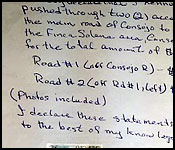 pushed through two (2) acce
the main road of Consejo to
the Finca Solana area, Coroz
for the total amount of $
Road #1 (off Consejo R -
Road #2 (off Rd#1, left)
(Photos included)
I declare these statements
to the best of my knowleg